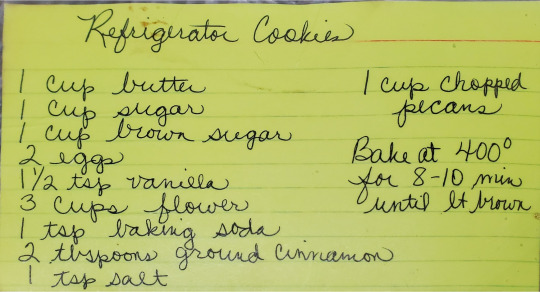 Refrigerator Cookies
1 cup butter
1 cup sugar
1 cup brown sugar
2 eggs
1 1/2 tsp vanilla
3 cups flower
1 tsp baking soda
2 tbspoons ground cinnamon
1 tsp salt
1 cup chopped
pecans
Bake at 400°
for 8-10 min
until lt brown